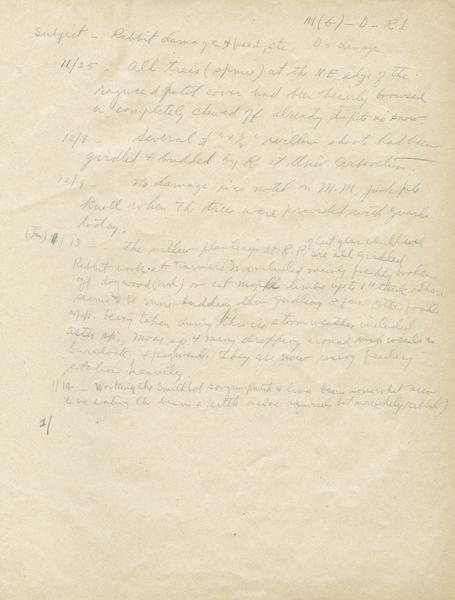 M(6)-D-R1
Subject - Rabbit damage + feed, etc. D = damage
11/25 - All trees (spruce) at the N.E. edge of the
ragweed patch cover had been heavily browsed
or completely chewed off already despite no snow
12/8 - Several ¼" + ½" willow shoots had been
girdled & budded by R at Univ.
12/9 - No damage was noted on M.M. jack pine
knoll when the trees were provided with guards
today.
(Jan) 1/13 - The willow plantings at R.P. of last year are all girdled
Rabbit work at included mainly freshly broken
off dogwood (red) or cut maple limbs up to 1" thick, there
seems to be more budding than girdling so far. Other foods
app. being taken during the stormweather included
aster sp., moss sp. & many droppings around weeds as
burdock, & ragweed. They are now using feeding
station heavily
1/14 - Working the Smith lot sorgum patch & lima beans somewhat seem
to be eating the beans & pith or else squirrels but more likely rabbit)
1/